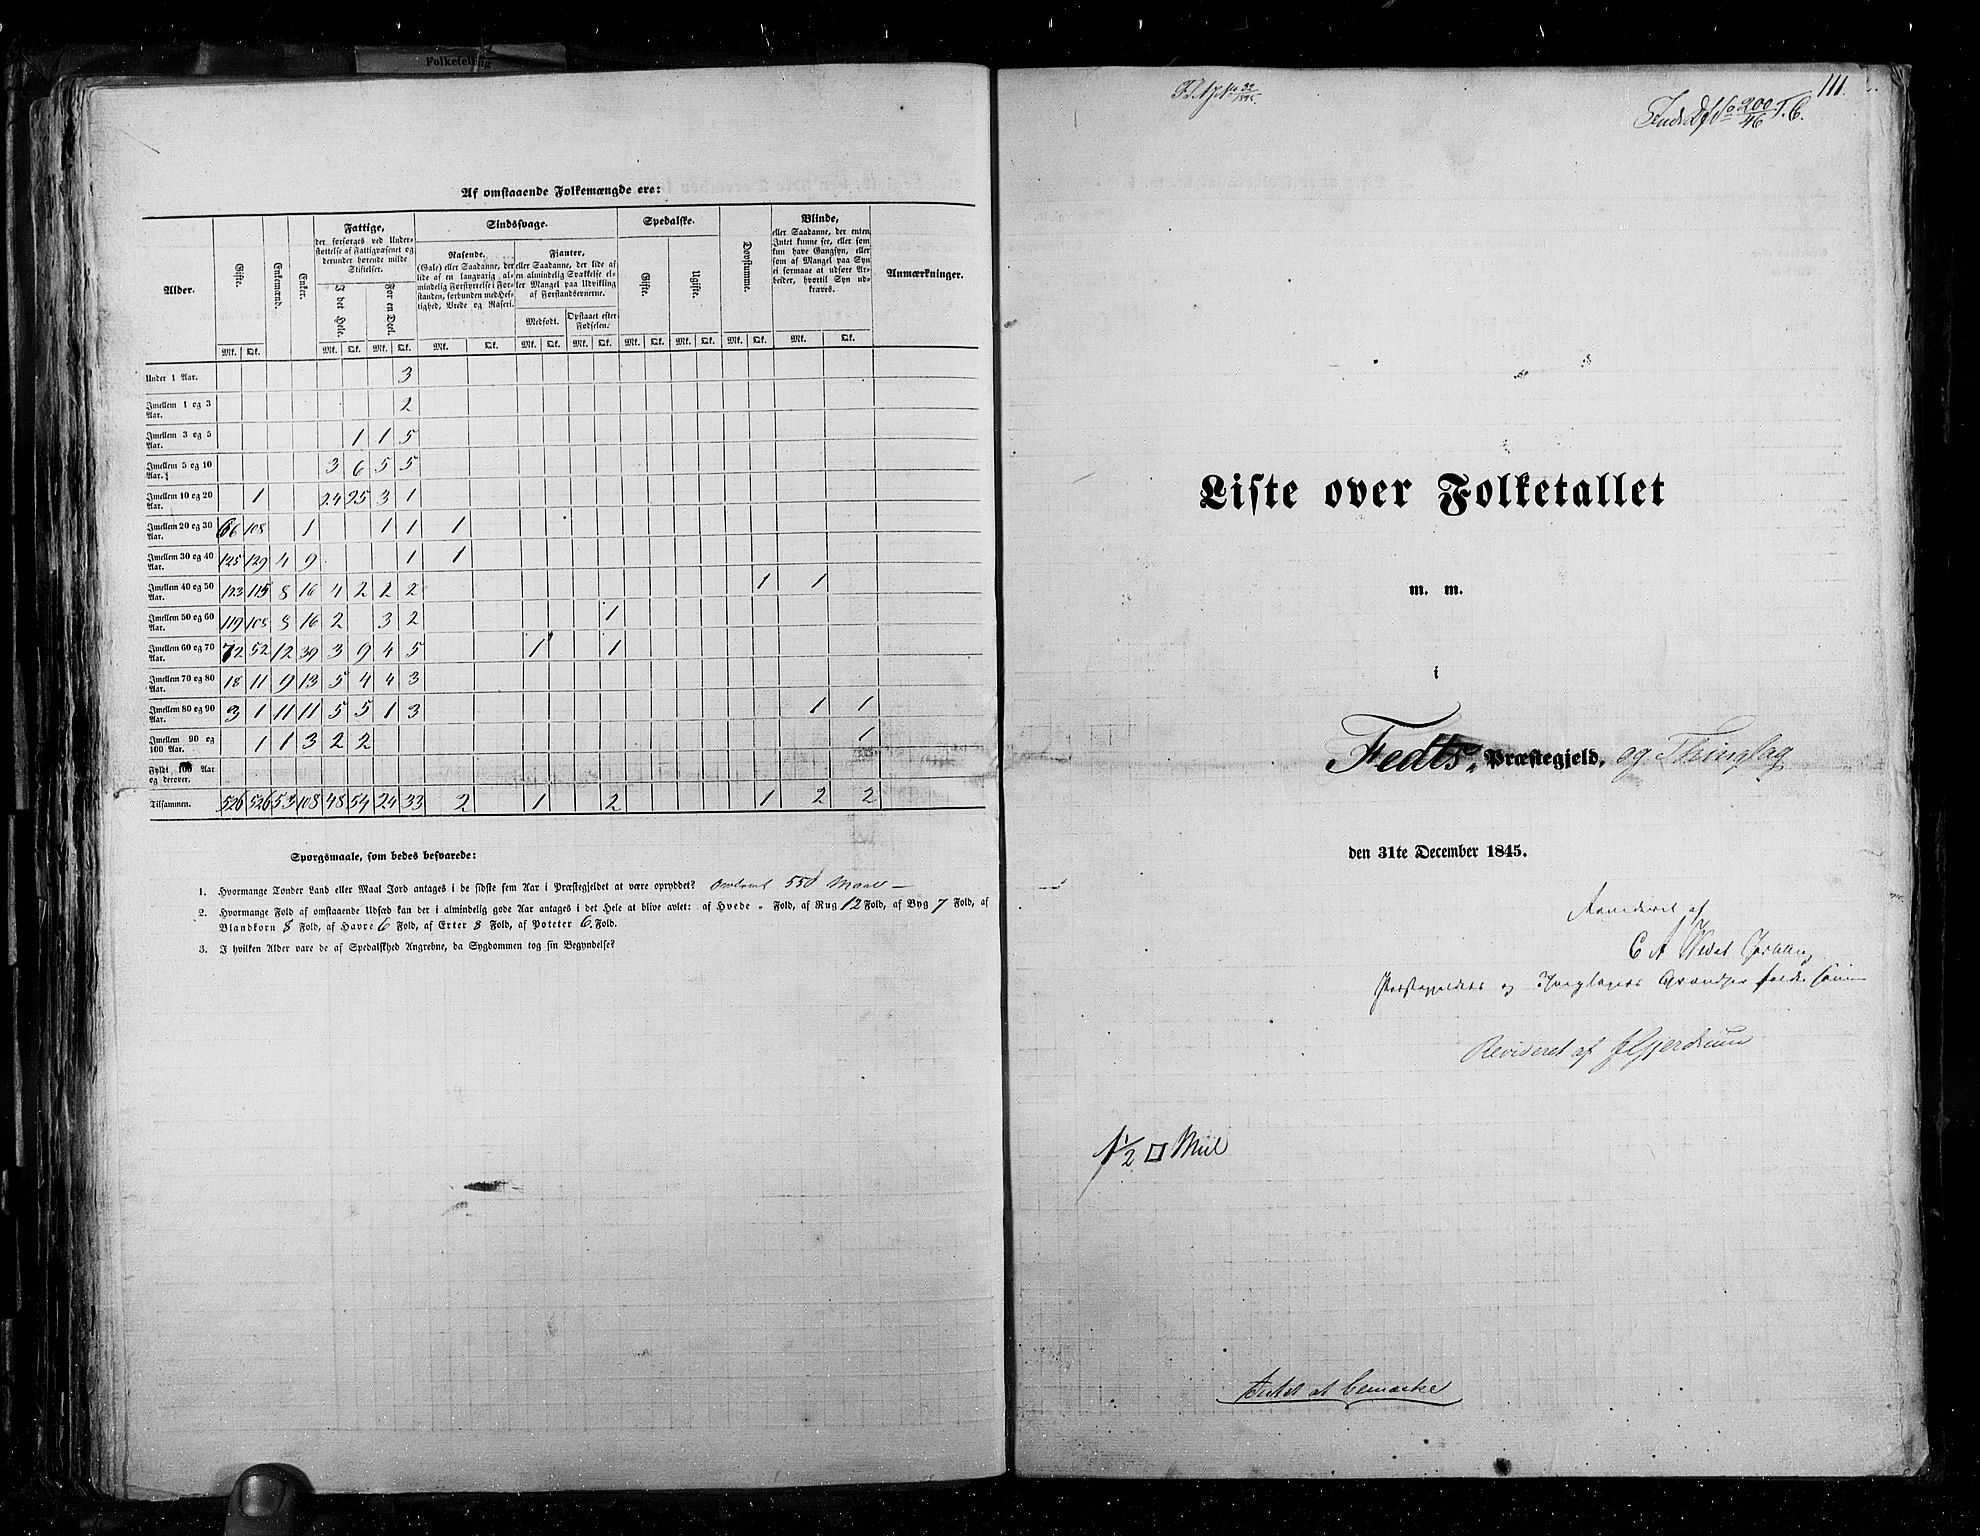 Folketelling
Af omstaaende Folkemængde ere:
Alder. Gifte. Enkemænd. Enker. Fattige, Sindssvage. Spedalske. Døvstumme. Blinde, Anmærkninger.
der forsørges ved Under-
støttelse af Fattigvæsenet og
derunder hørende milde
Stiftelser.
I det Hele. For en Deel.
Rasende.
(Gale) eller Saadanne, der
lide af en langvarig al-
mindelig Forstyrrelse i For-
standen, forbunden med Hef-
tighed, Vrede og Raseri.
Fianter,
eller Saadanne, der lide af
en almindelig Svækkelse el-
ler Mangel paa Udvikling
af Forstandsevnerne.
Medfødt. Opstaaet efter Fødselen.
Gifte. Ugifte.
eller Saadanne, der enten
Intet kunne see, eller som
kun have Gangsyn, eller
som af Mangel paa Syn
ei formaae at udføre Ar-
beider, hvortil Syn ud-
kræves.
Mk. Qk. Mk. Qk. Mk. Qk. Mk. Qk. Mk. Qk. Mk. Qk. Mk. Qk. Mk. Qk. Mk. Qk. Mk. Qk.
Under 1 Aar. 3
Imellem 1 og 3 Aar. 2
Imellem 3 og 5 Aar. 1 1 5
Imellem 5 og 10 Aar. 3 6 5 5
Imellem 10 og 20 Aar. 1 24 25 3 1
Imellem 20 og 30 Aar. 66 108 1 1 1 1
Imellem 30 og 40 Aar. 125 129 4 9 1 1
Imellem 40 og 50 Aar. 123 115 8 16 4 2 2 2 1 1
Imellem 50 og 60 Aar. 119 108 8 16 2 3 2 1
Imellem 60 og 70 Aar. 72 52 12 39 3 9 4 5 1 1
Imellem 70 og 80 Aar. 18 11 9 13 5 4 4 3
Imellem 80 og 90 Aar. 3 1 11 11 5 5 1 3 1 1
Imellem 90 og 100 Aar. 1 1 3 2 2 1
Fyldt 100 Aar og derover.
Tilsammen. 526 526 53 108 48 54 24 33 2 1 2 1 2 2
Spørgsmaale, som bedes besvarede:
1. Hvormange Tønder Land eller Maal Jord antages i de sidste fem Aar i Præstegjeldet at være opryddet? Omtrent 550 Maal
2. Hvormange Fold af omstaaende Udsæd kan der i almindelig gode Aar antages i det Hele at blive avlet: af Hvede Fold, af Rug 12 Fold, af Byg 7 Fold, af
Blandkorn 8 Fold, af Havre 6 Fold, af Erter 8 Fold, af Poteter 6 Fold.
3. I hvilken Alder vare de af Spedalskhed Angrebne, da Sygdommen tog sin Begyndelse?
111.
32/1845.
200/46 T. C.
Liste over Folketallet
m. m.
i
Fedts Præstegjeld, og Thinglag
den 31te December 1845.
af
Præstegjeldets og Thinglagets Grændser
Revideret af Gjerdrum
1/2 □ Miil
Intet at bemærke